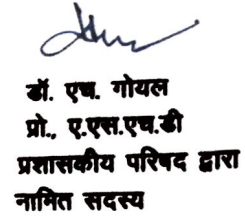 डॉ. एच. गोयल
प्रो., ए.एस.एच.डी
प्रशासकीय परिषद द्वारा
नामित सदस्य